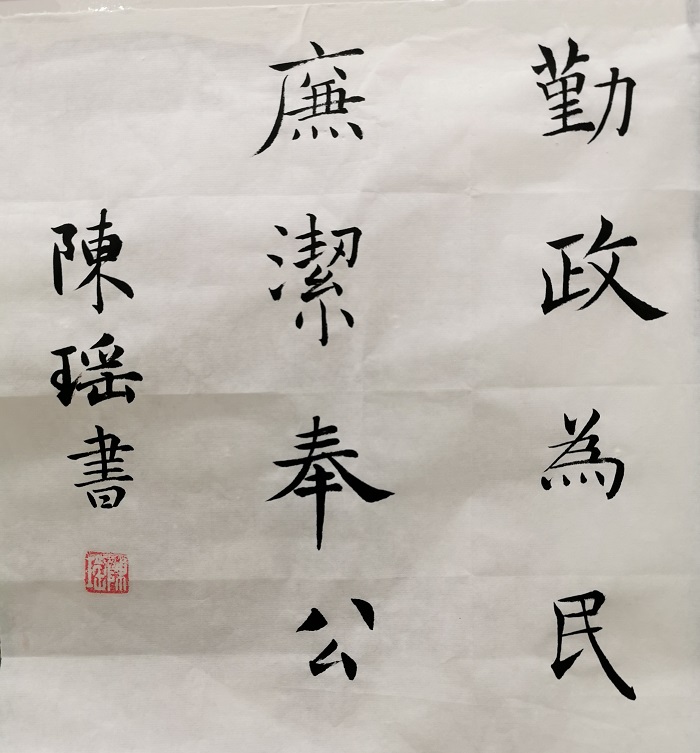 勤政為民
廉潔奉公
陳瑶書
陳瑶